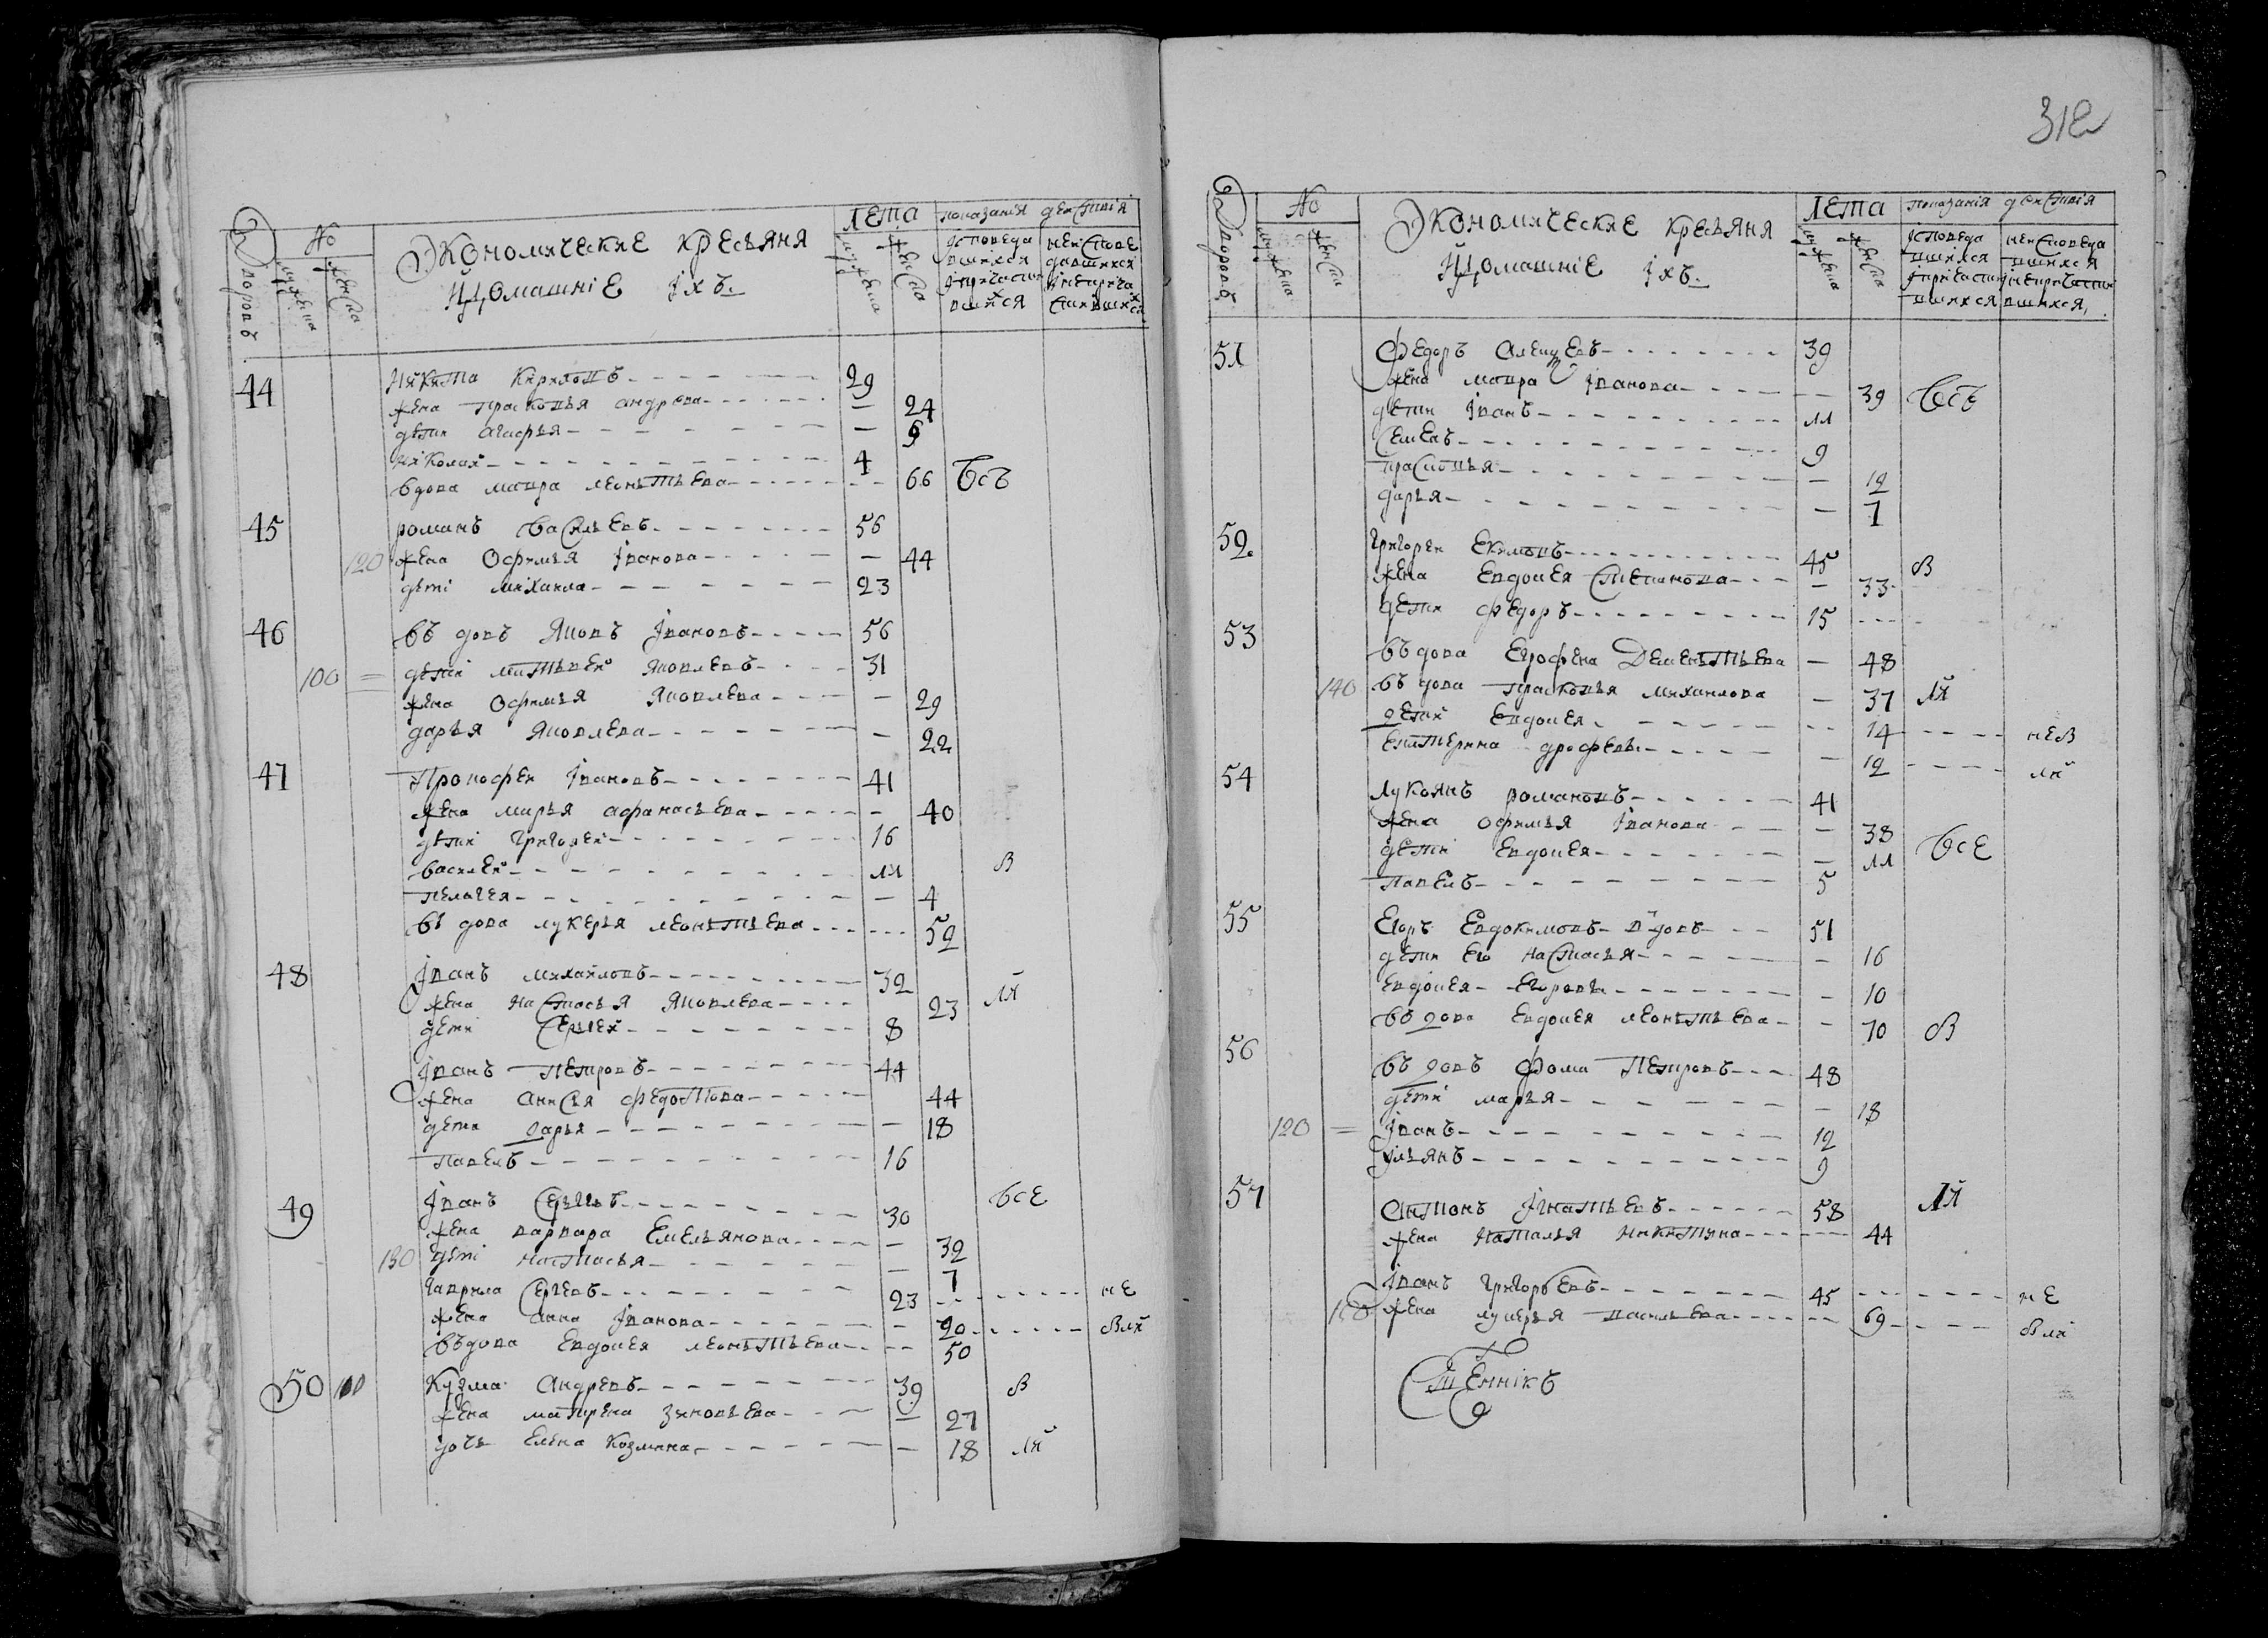 312
Дворовъ
No
мужеска
женска
Экономические кресьяня
Идомашніе іхъ.
Лета
мужеска
женска
показанія действія
Исповеда
вшихся
Іпричасти
вшихся
неиспове
давшихся
Інеприча
стившихся
44 Никита Кириловъ 29
жена Прасковья андреева — 24
дети агафья — 6
Николай 4
вдова мавра леонтьева — 66 Всъ
45 романъ васильевъ 56
120 жена Офимья Іванова — 44
деті михаила 23
46 въ довъ Яковъ Івановъ 56
100 = дети матьвей Яковлевъ 31
жена Офимья Яковлева — 29
дарья Яковлева — 22
47 Прокофеи Івановъ 41
жена марья афанасьева — 40
дети григорей 16
василей 11 В
пелагея — 4
въ дова лукерья леонтьева 52
48 Іванъ михайловъ 32
жена настасья Яковлева 23 ля
дети Сергей 8
Іванъ Петровъ 44
жена анисья федотова 44
дети дарья — 18
павелъ 16
49 Іванъ Сергевъ 30 все
жена варвара Емельянова — 32
130 деті настасья — 7
гаврила Сергевъ 23 не
жена анна Іванова — 20 вля
въдова Евдокея леонтьева — 50
50 110 Кузма андревъ 39 В
жена матрена зиновьева — 27
дочь Елена Козмина — 18 ля
Дворовъ
No
мужеска
женска
Экономические кресьяня
Идомашніе іхъ.
Лета
мужеска
женска
показанія действія
Исповеда
вшихся
Іпричасти
вшихся
неисповеда
вшихся
Інепричасти
вшихся,
51 федоръ алексеевъ 39
жена мавра Іванова — 39 Всъ
дети Іванъ 11
Семенъ 9
прасковья — 12
дарья — 7
52. григореи Екимовъ 45 В
жена Евдокея Степанова — 33
дети федоръ 15
53 въ дова Ерофена Дементьева — 48
140 въ дова прасковья михаилова — 37 ля
дети Евдокея — 14 нев
Екатерина дрофевы — 12 ля
54 лукоянъ романовъ 41
жена офимья Іванова — 38
дети Евдокея — 11 Все
павелъ 5
55 Егоръ Евдокимовъ вдовъ 51
дети Его настасья — 16
Евдокея Егоровы — 10
въ дова Евдокея леонтьева — 70 В
56 въ довъ фома Петровъ 48
дети марья — 18
120 = Іванъ 12
ульянъ 9
57 антонъ Ігнатьевъ 58 ля
жена наталья никитина 44
Іванъ григорьевъ 45 не
150 жена лукерья васильева — 69 вля
Стенникъ